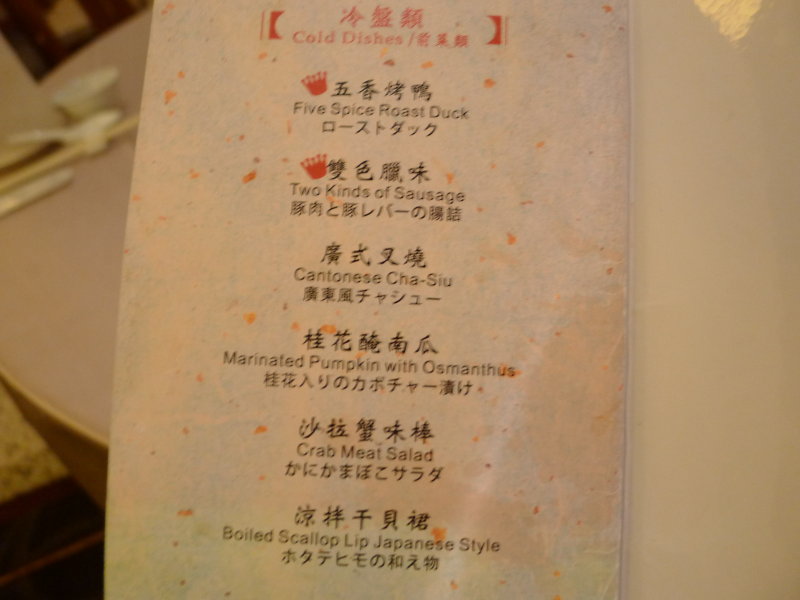 冷盤類
Cold Dishes/前菜類
五香烤鴨
Five Spice Roast Duck
ローストダック
雙色臘味
Two Kinds of Sausage
豚肉と豚レバーの腸詰
廣式叉燒
Cantonese Cha-Siu
廣東風チャシュー
桂花醃南瓜
Marinated Pumpkin with Osmanthus
桂花入りのカボチャー漬け
沙拉蟹味棒
Crab Meat Salad
かにかまぼこサラダ
涼拌干貝裙
Boiled Scallop Lip Japanese Style
ホタテヒモの和え物